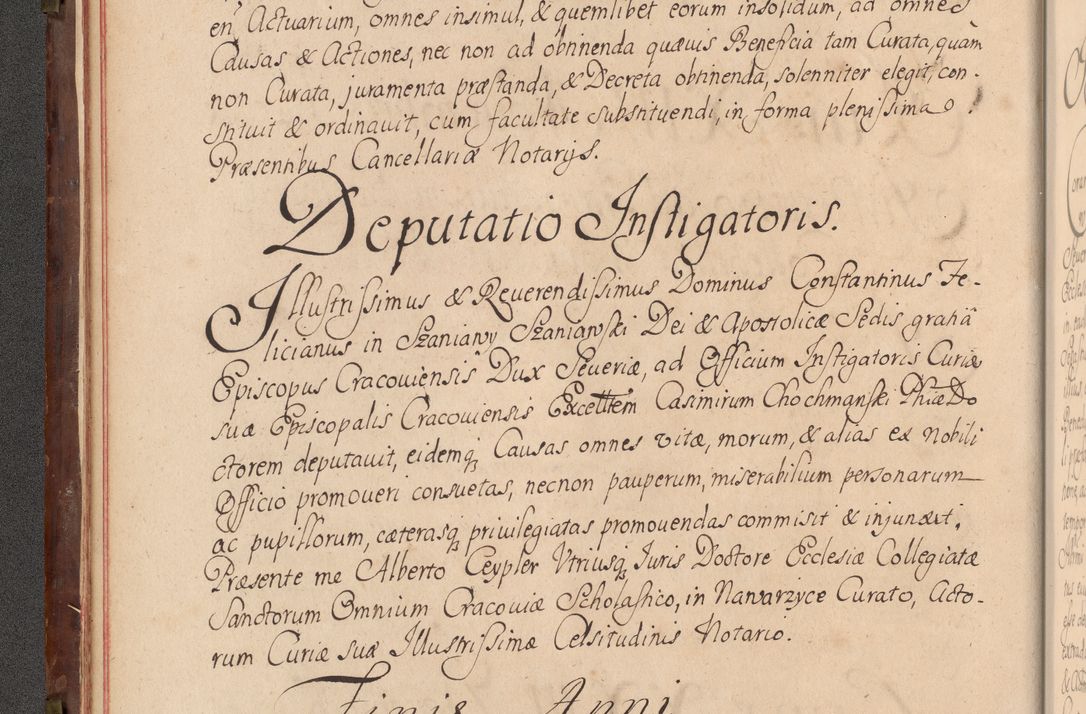 en, Actuarium, omnes insimul, & quemlibet eorum insolidum, ad omnes
Causas & Actiones, nec non ad obtinenda quævis Beneficia tam Curata, quam
non Curata, juramenta præstanda, & Decreta obtinenda, solenniter elegit, con-
stituit & ordinavit, cum facultate substituendi, in forma plenissima
Præsentibus Cancellariæ Notarijs.
Deputatio Instigatoris.
Illustrissimus & Reverendissimus Dominus Constantinus Fe-
licianus in Szaniawy Szaniawski Dei & Apostolicæ Sedis gratiâ
Episcopus Cracoviensis Dux Severiæ, ad Officium Instigatoris Curiæ
suæ Episcopalis Cracoviensis Excellltem Casimirum Chochmanski Phiæ Do
ctorem deputavit, eidemq Causas omnes vitæ, morum, & alias ex nobili
Officio promoveri consuetas, necnon pauperum, miserabilium personarum
ac pupillorum, cæterasq privilegiatas promovendas commisit & injunxit.
Præsente me Alberto Ceypler Utriusq Iuris Doctore Ecclesiæ Collegiatæ
Sanctorum Omnium Cracoviæ Scholastico, in Nawarzyce Curato, Acto-
rum Curiæ suæ Illustrissimæ Celsitudinis Notario.
Finis Anni